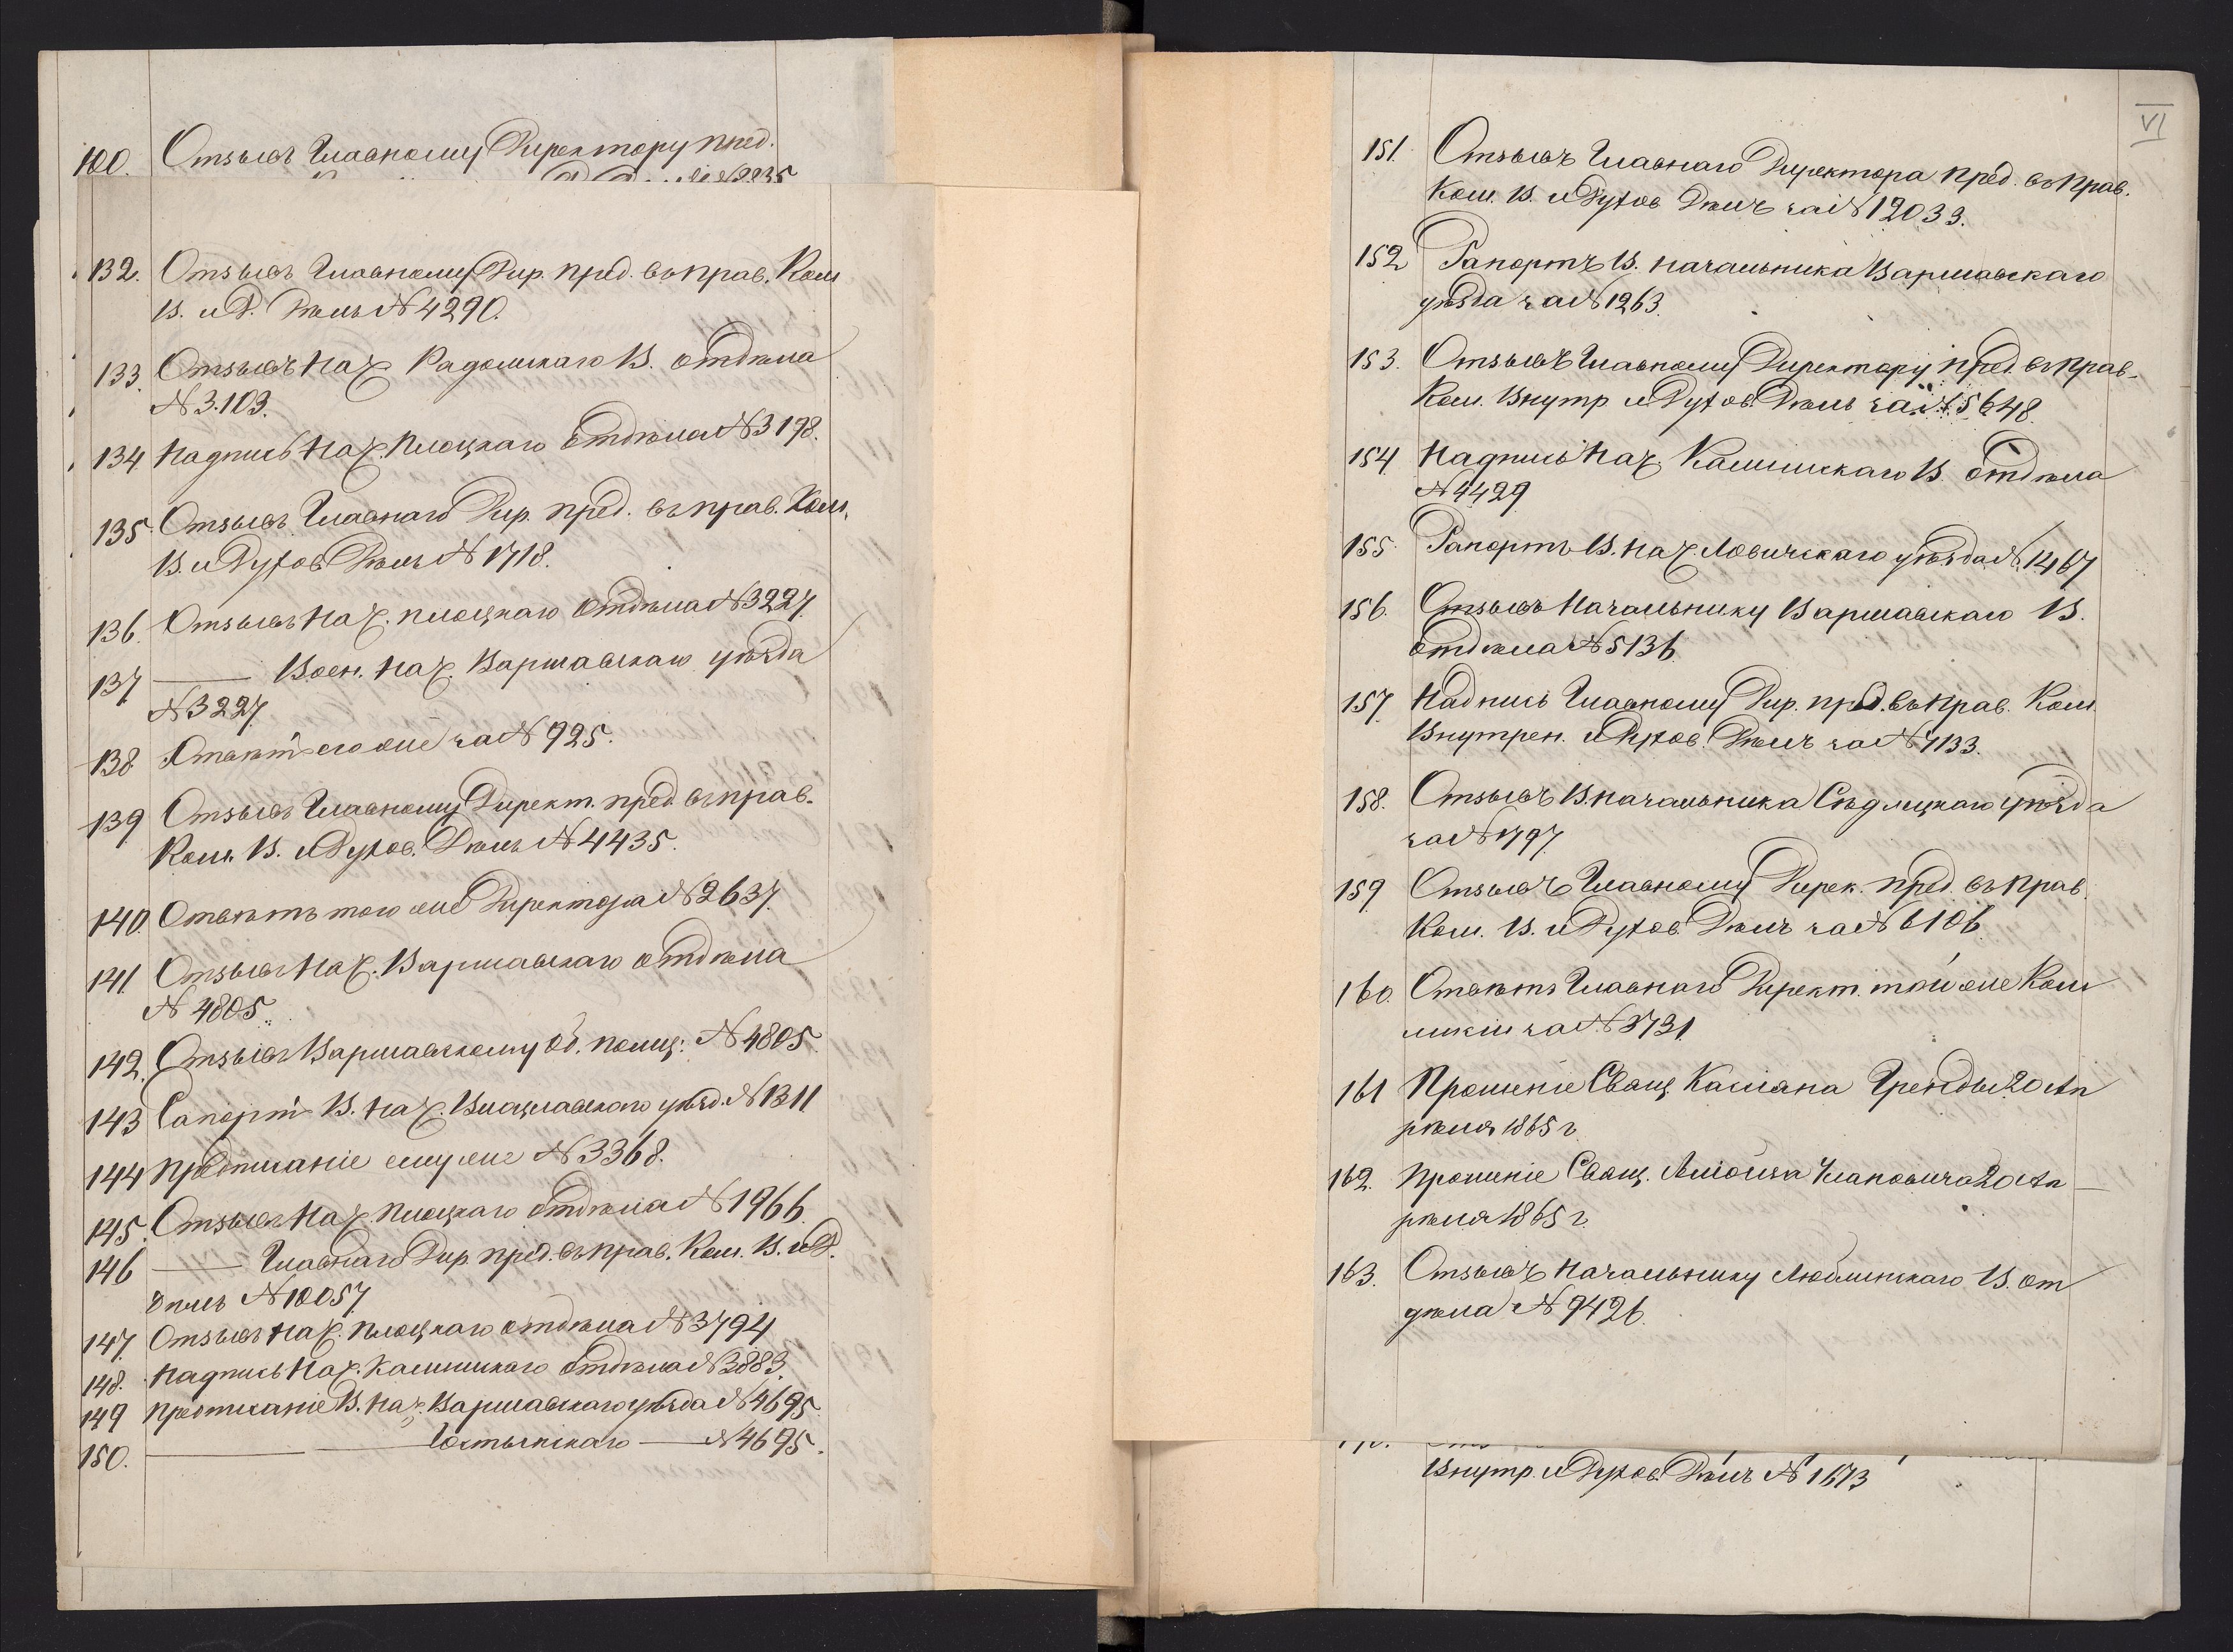 100. Отзывъ Главному Директору пред.
132. Отзывъ Главному Дир. пред. въ прав. Ком
В. и Д. Дѣлъ № 4290.
133. Отзывъ Нач. Радомскаго В. отдѣла
№ 3103.
134 Надпись Нач. Плоцкаго Отдѣла № 3198.
135. Отзывъ Главнаго Дир. пред. въ прав. Ком.
В. и Духов. Дѣлъ № 1718.
136. Отзывъ Нач. плоцкаго Отдѣла № 3227.
137 —— Воен. Нач. Варшавскаго уѣзда
№ 3227
138 Отвѣтъ его же за № 925.
139 Отзывъ Главному Директ. пред. въ прав.
Ком. В. и Духов. Дѣлъ № 4435.
140. Отвѣтъ того же Директора № 2637.
141. Отзывъ Нач. Варшавскаго отдѣла
№ 4805.
142. Отзывъ Варшавскому Об. полиц: № 4805.
143 Рапортъ В. Нач. Влацлавскаго уѣзд. № 1311
144 Предписаніе ему же № 3368.
145. Отзывъ Нач. Плоцкаго отдѣла № 1966.
146 —— Главнаго Дир. пред. въ прав. Ком. В. и Д.
дѣлъ № 10057
147. Отзывъ Нач. Плоцкаго отдѣла № 3794
148. Надпись Нач. Калишскаго Отдѣла № 3883.
149 Предписаніе В. Нач. Варшавскаго уѣзда № 4695.
150. —— —— Гостынскаго —— № 4695.
VI
151. Отзывъ Главнаго Директора пред. въ Прав.
Ком. В. и Духов Дѣлъ за № 12033.
152 Рапортъ В. Начальника Варшавскаго
уѣзда за № 1263.
153. Отзывъ Главному Директору пред. въ прав.
Ком. Внутр и Духов. Дѣлъ за № 5648.
154 Надпись Нач. Калишскаго В. Отдѣла
№ 4429
155. Рапортъ В. Нач. Ловичскаго уѣзда № 1467
156. Отзывъ Начальнику Варшавскаго В.
Отдѣла № 5136.
157. Надпись Главному Дир. пред. въ Прав. Ком.
Внутрен. и Духов. Дѣлъ за № 7133.
158. Отзывъ В. начальника Сѣдлецкаго уѣзда
за № 1797.
159 Отзывъ Главному Дирек. пред. въ Прав.
Ком. В. и Духов. Дѣлъ за № 6106.
160. Отвѣтъ Главнаго Директ. той же Ком
мисіи за № 3731.
161 Прошеніе Свящ. Касіана Гренды 20 Ап
рѣля 1865 г.
162. Прошеніе Свящ. 20 Ап
рѣля 1865 г.
163. Отзывъ Начальнику Люблинскаго В. от
дѣла № 9426.
Внутр. и Духов. Дѣлъ № 1673